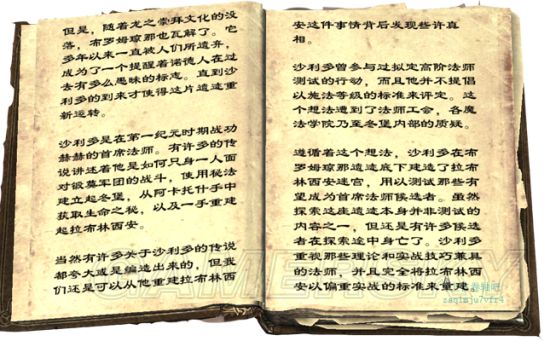 但是，随着龙之崇拜文化的没
落，布罗姆琼那也瓦解了。它
多年以来一直被人们所遗弃，
成为了一个提醒着诺德人在过
去有多么愚昧的标志。直到沙
利多的到来才使得这片遗迹重
新运转。
沙利多是在第一纪元时期战功
赫赫的首席法师。有许多的传
说讲述着他是如何只身一人面
对锻莫军团的战斗，使用秘法
建立起冬堡，从阿卡托什手中
获取生命之秘，以及一手重建
起拉布林西安。
当然有许多关于沙利多的传说
都夸大或是编造出来的，但我
们还是可以从他重建拉布林西
安这件事情背后发现些许真
相。
沙利多曾参与过拟定高阶法师
测试的行动，而且他并不提倡
以施法等级的标准来评定。这
个想法遭到了法师工会，各魔
法学院乃至冬堡内部的质疑。
遵循着这个想法，沙利多在布
罗姆琼那遗迹底下建造了拉布
林西安迷宫，用以测试那些有
望成为首席法师候选者。虽然
探索这座遗迹本身并非测试的
内容之一，但还是有许多候选
者在探索途中身亡了。沙利多
重视那些理论和实战技巧兼具
的法师，并且完全将拉布林西
安以偏重实战的标准来重建
GAMERSKY
zaqimju7vfr4